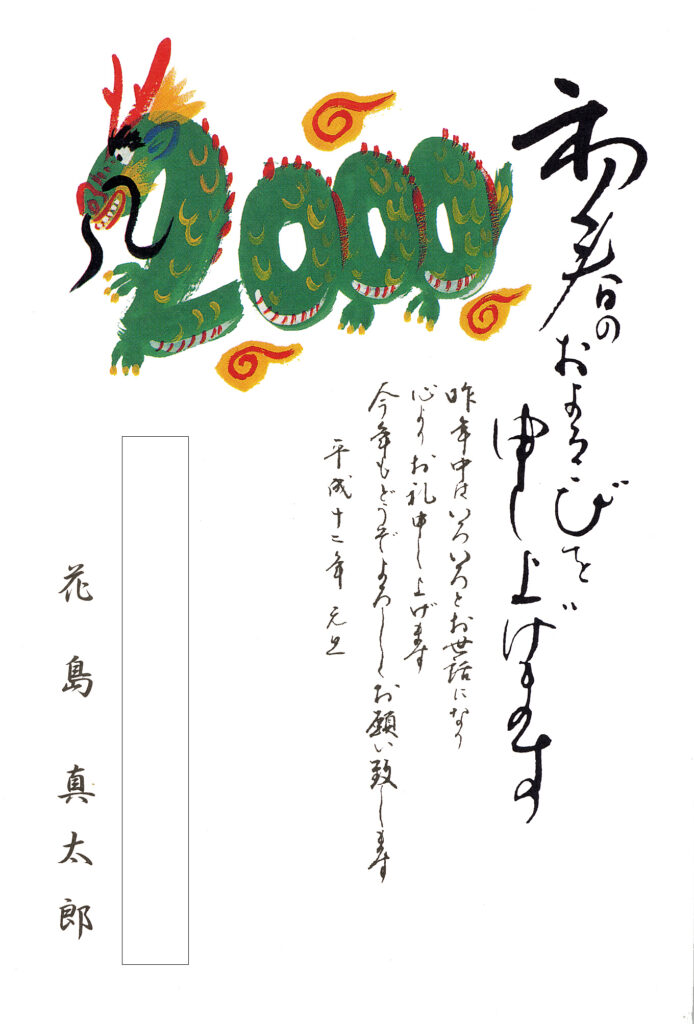 2000
初春のおよろこびを
申し上げます
昨年中はいろいろとお世話になり
心よりお礼申し上げます
今年もどうぞよろしくお願い致します
平成十二年 元旦
花島 真太郎